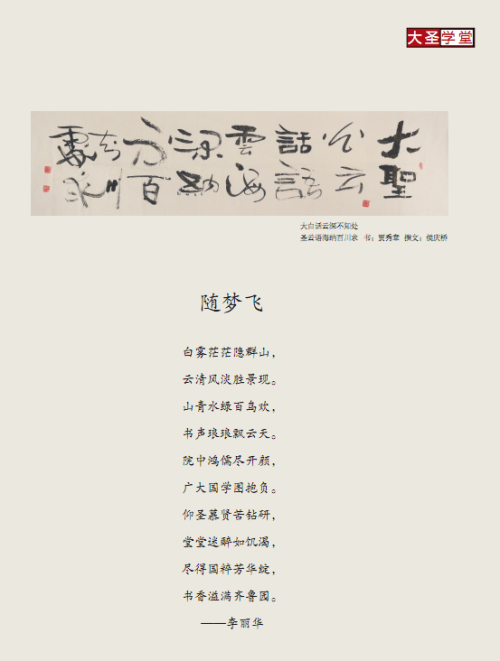 大圣学堂
大聖
公云
話語
雲海
深納
不百
知川
處承
大白话云深不知处
圣云语海纳百川承 书：贾秀章 撰文：侯庆桥
随梦飞
白雾茫茫隐群山，
云清风淡胜景现。
山青水绿百鸟欢，
书声琅琅飘云天。
院中鸿儒尽开颜，
广大国学图抱负。
仰圣慕贤苦钻研，
堂堂迷醉如饥渴，
尽得国粹芳华绽，
书香溢满齐鲁园。
——李丽华